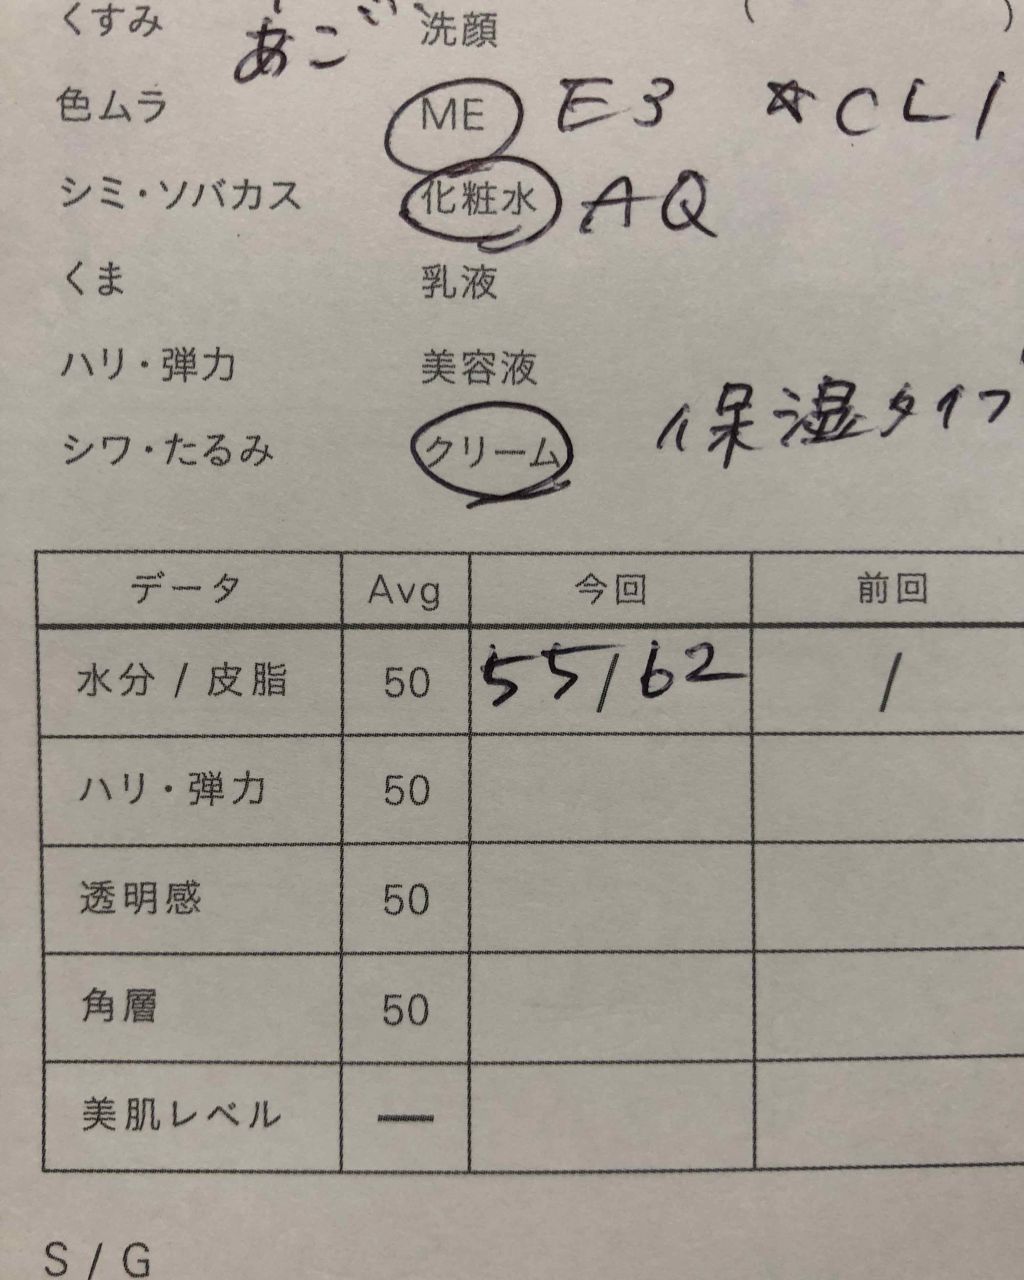 くすみ 洗顔 ( )
あご
色ムラ ME E3 ☆CL1
シミ・ソバカス 化粧水 AQ
くま 乳液
ハリ・弾力 美容液
シワ・たるみ クリーム 保湿タイプ
データ Avg 今回 前回
水分 / 皮脂 50 55/62 /
ハリ・弾力 50
透明感 50
角層 50
美肌レベル —
S / G